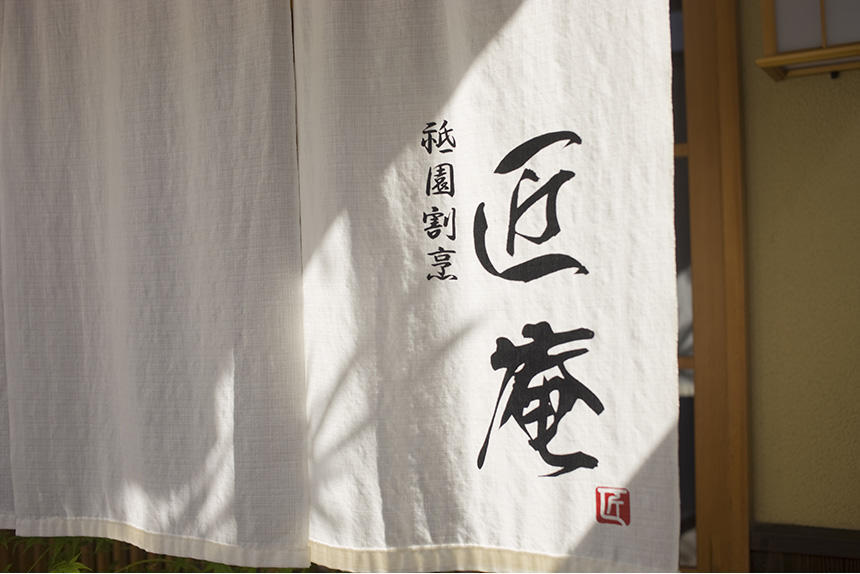 匠庵
祇園割烹
匠